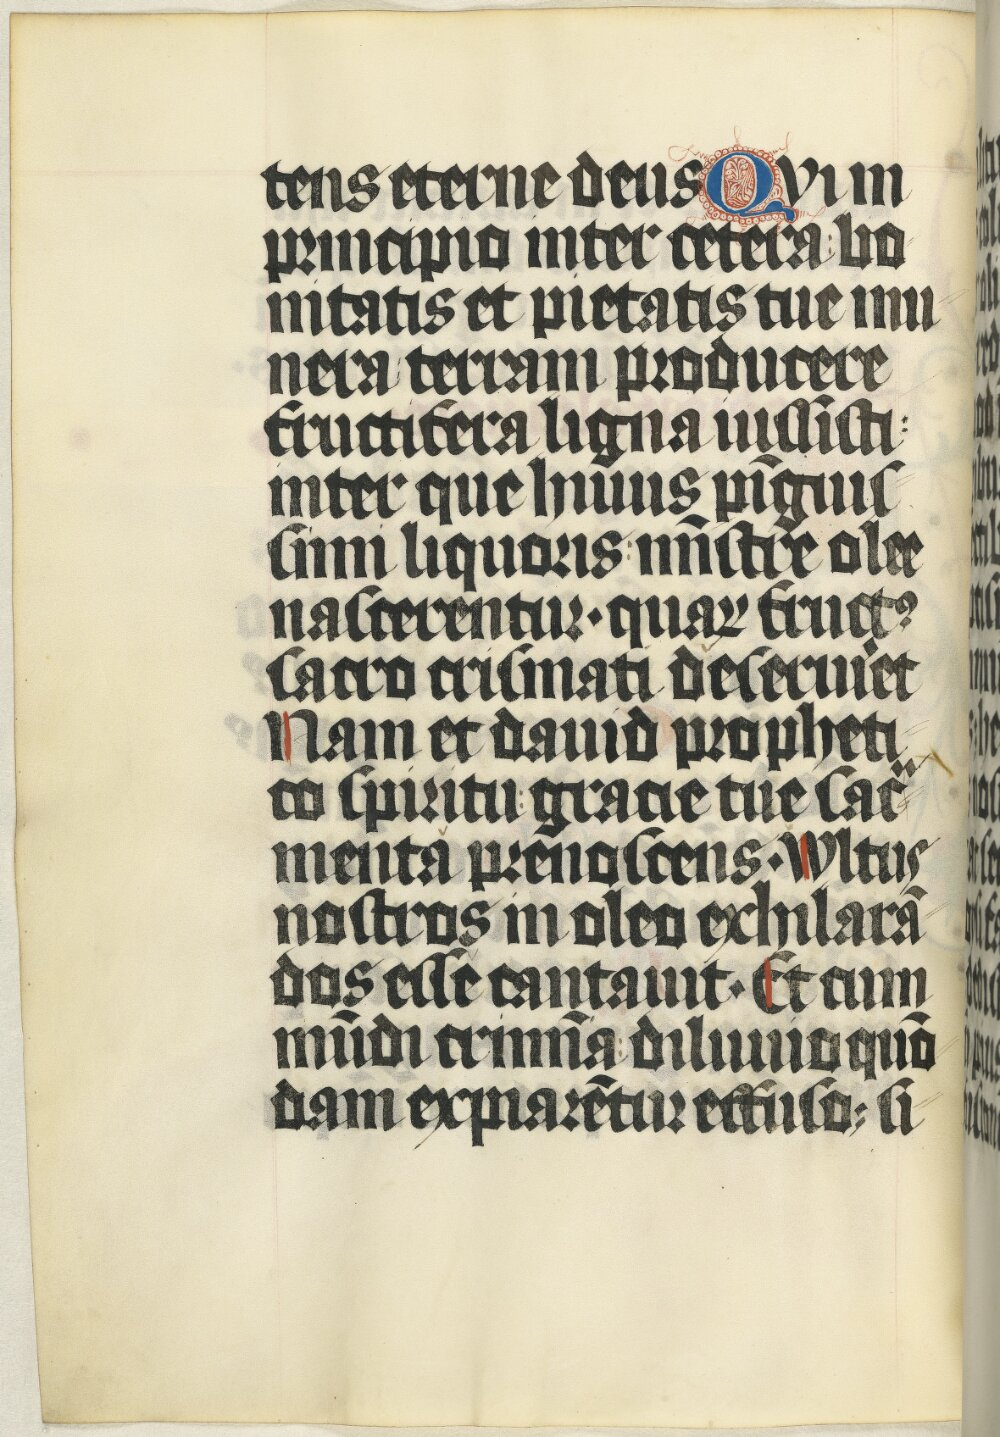 tens eterne deus QVi in
principio inter cetera: bo
nitatis et pietatis tue mu
nera terram producere
fructifera ligna iussisti:
inter que huius pīguis
simi liquoris: mīstre olee
nascerentur · quaꝝ fruct᾿
sacro crismati deseruiēt
Nam et dauid propheti
co spiritu: gracie tue sac̄
menta prenoscens · Wltus
nostros in oleo exhilarā
dos esse cantauit · Et cum
mūdi crimīa: diluuio quō
dam expiarētur effuso: si